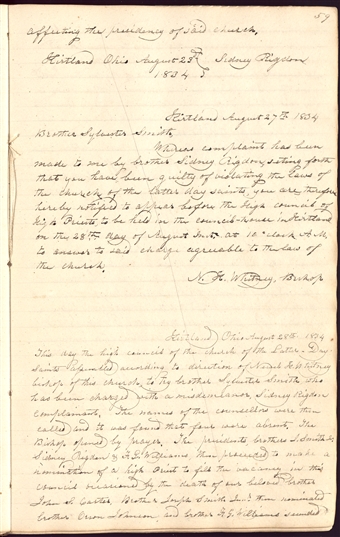 59
affecting the presidency of said church.
Kirtland Ohio August 28th Sidney Rigdon
1834
Kirtland August 27th 1834
Brother Sylvester Smith,
Whereas complaint has been
made to me by brother Sidney Rigdon, seting forth
that you have been guilty of violating the laws of
the church of the latter day saints, you are therefore
hereby notified to appear before the high council of
high Priests to be held in the council-house in Kirtland
on the 28th day of August Inst. at 10 o'clock A.M.
to answer to said charge agreeable to the law of
the church.
N. K. Whitney, Bishop
Kirtland, Ohio August 28th 1834
This day the high council of the church of the Latter-Day-
Saints assembled according to direction of Newel K. Whitney
bishop of this church, to try brother Sylvester Smith who
has been charged with a misdemeanor, Sidney Rigdon
complainant. The names of the counsellors were then
called and it was found that four were absent. The
Bishop opened by prayer. The presidents, brothers J. Smith Jr
Sidney Rigdon & F. G. Williams, then proceeded to make a
nomination of a high Priest to fill the vacancy in this
council occasioned by the death of our beloved brother
John S. Carter. Brother Joseph Smith Jun. then nominated
brother Orson Johnson and brother F. G. Williams seconded